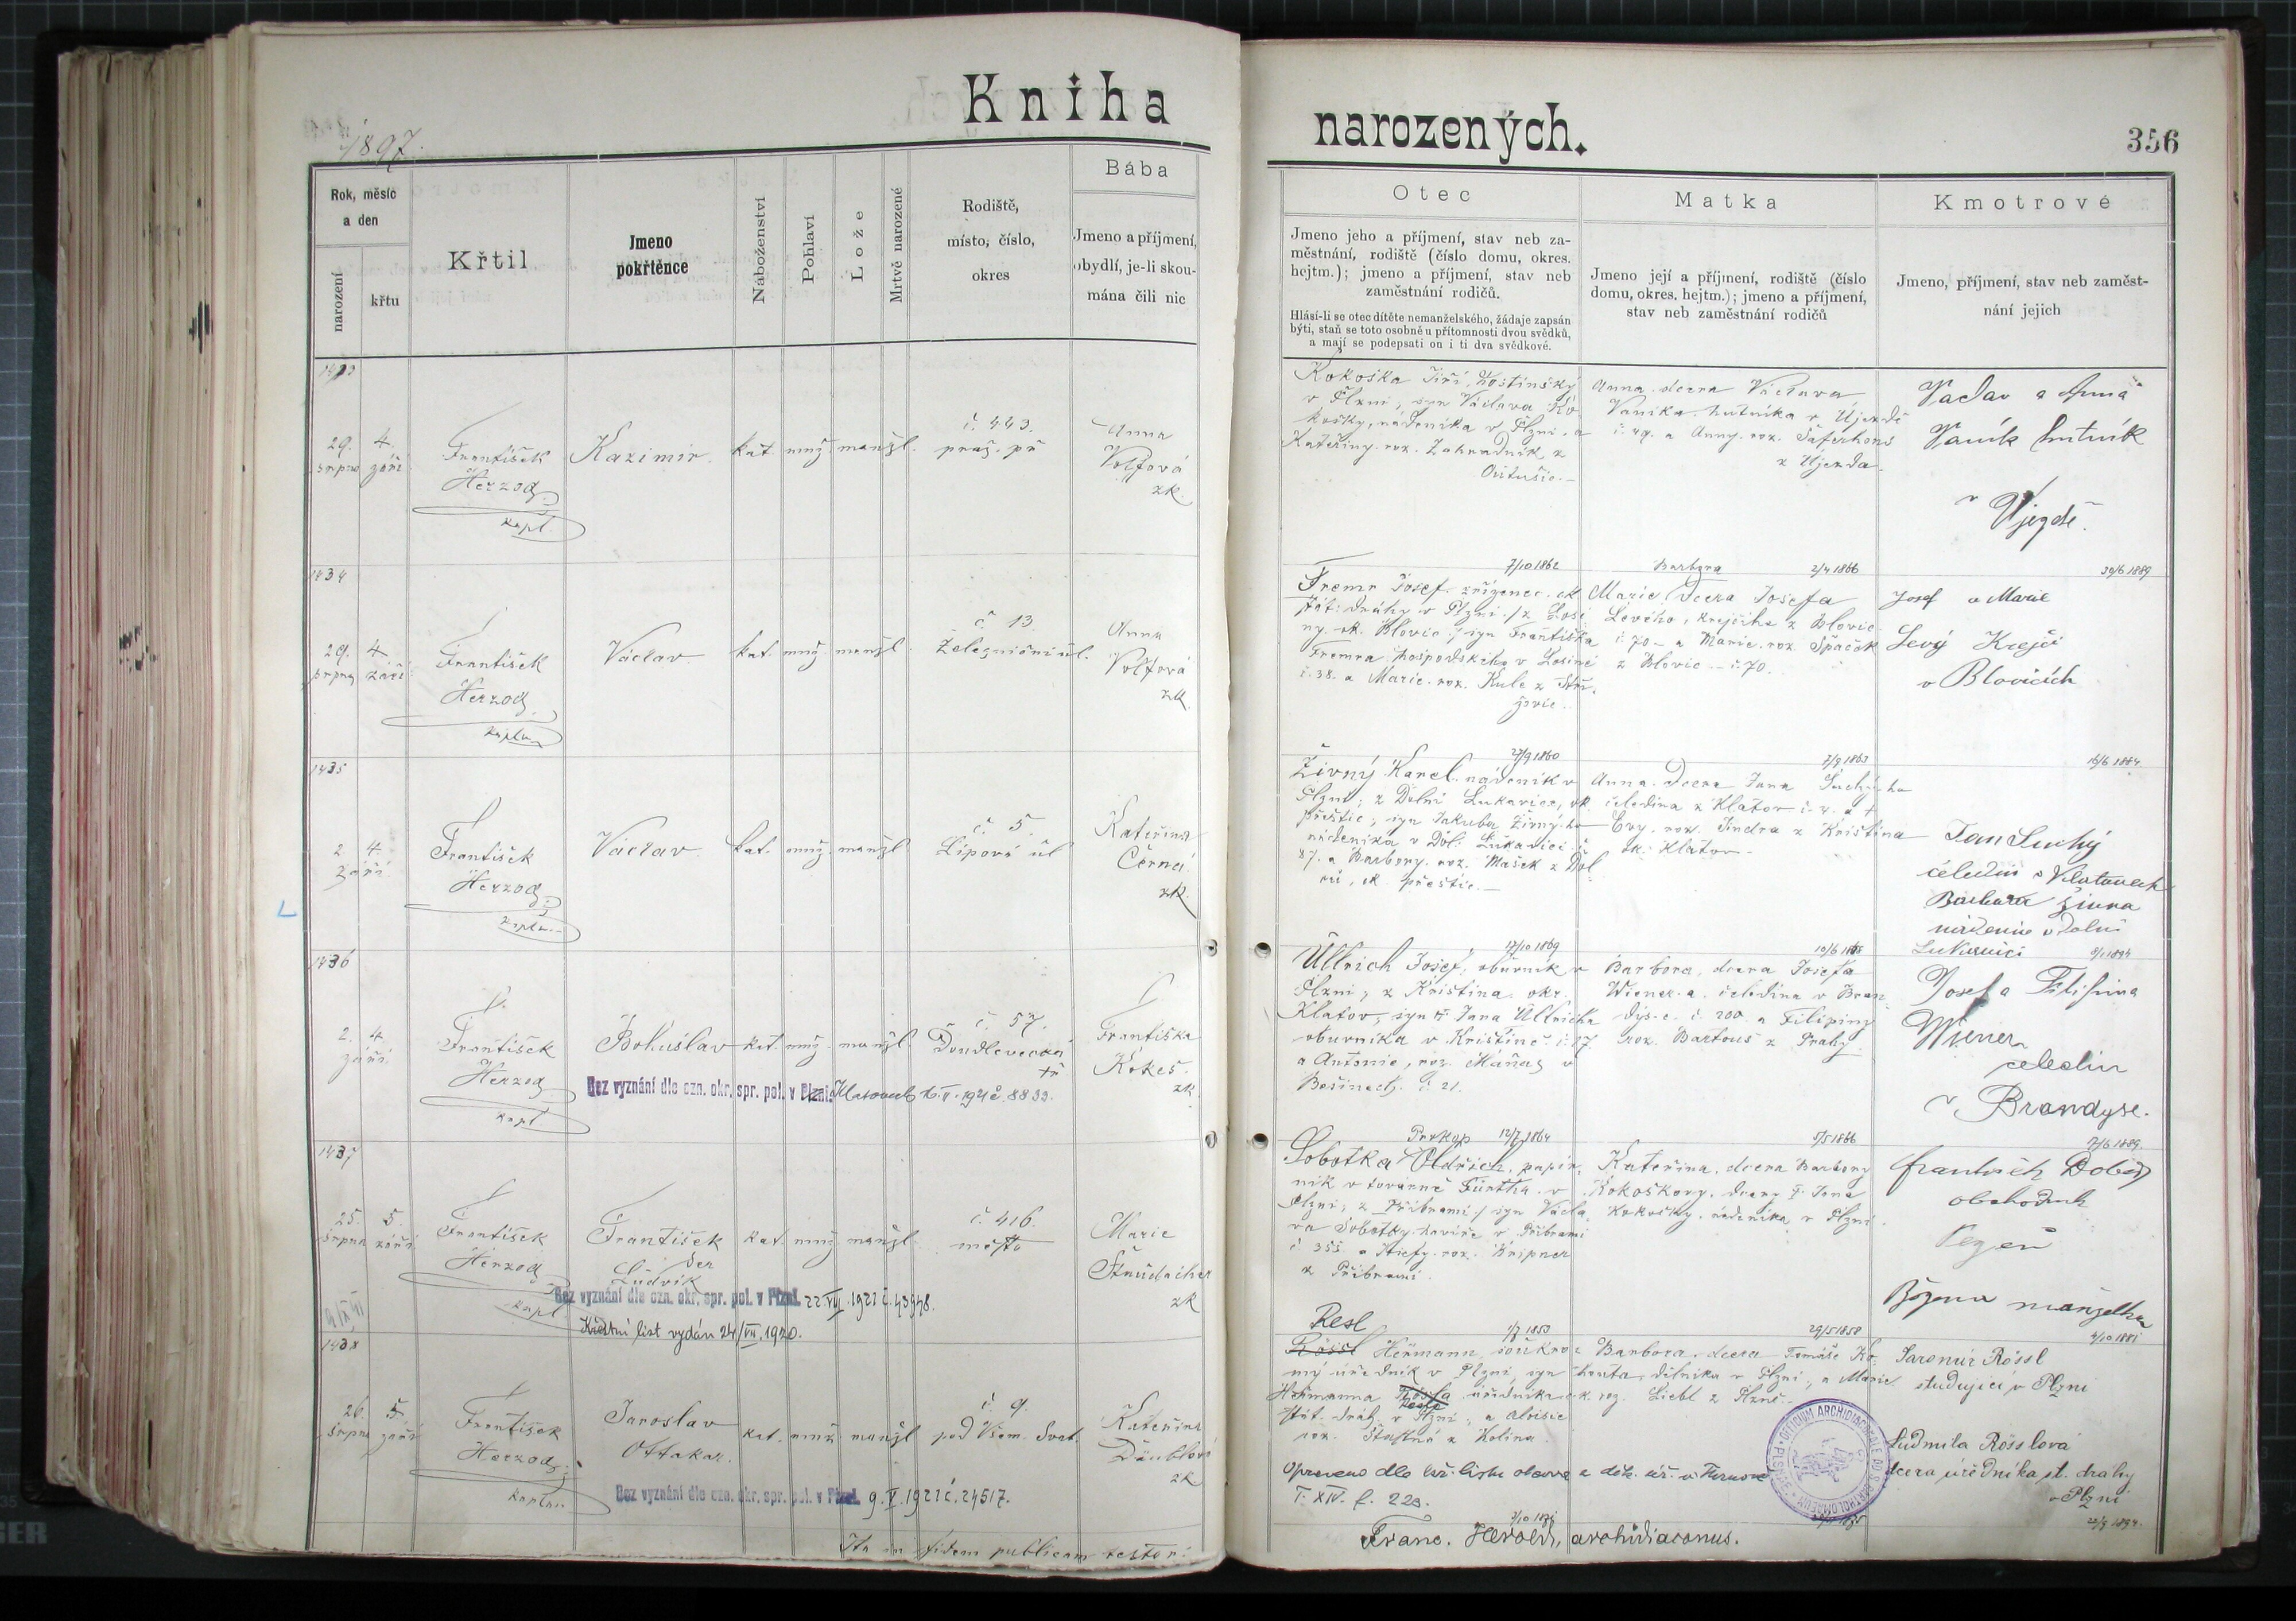 Kniha
1897.
Rok, měsíc
a den
narození
křtu
Křtil
Jmeno
pokřtěnce
Náboženství
Pohlaví
Lože
Mrtvě narozené
Rodiště,
místo, číslo,
okres
Bába
Jmeno a příjmení,
obydlí, je-li skou-
mána čili nic
29. 4.
srpna září
František
Herzog
kapl.
Kazimir.
kat. muž. manžl.
č. 443.
praž. př
Anna
Volfová
zk.
1434
29. 4.
srpna září
František
Herzog
kaplan
Václav
kat. muž. manžl.
č. 13
Železniční ul.
Anna
Volfová
zk.
1435
2. 4.
září
František
Herzog
kaplan
Václav
kat. muž. manžl.
č. 5.
Lipová ul
Kateřina
Černá
zk.
1436
2. 4.
září
František
Herzog
kapl
Bohuslav
kat. muž. manžl.
č. 57.
Doudlevecká
tř
Františka
Kokeš.
zk.
Bez vyznání dle ozn. okr. spr. pol. v Plzni. 8833.
1437
25. 5.
srpna září
František
Herzog
kapl.
František
Ludvík
kat. muž. manžl.
č. 416.
město
Marie
zk
Bez vyznání dle ozn. okr. spr. pol. v Plzni. 22.VII.1921 č. 43948.
Křestní list vydán 24/VII.1920.
1438
26. 5.
srpna září
František
Herzog
kaplan
Jaroslav
Ottakar.
kat. muž. manžl
č. 9.
pod Všem. Svat.
Kateřina
zk
Bez vyznání dle ozn. okr. spr. pol. v Plzni. 9.V.1921 č. 24517.
Ita in fidem publicam testor:
narozených.
356
Otec
Jmeno jeho a příjmení, stav neb za-
městnání, rodiště (číslo domu, okres.
hejtm.); jmeno a příjmení, stav neb
zaměstnání rodičů.
Hlásí-li se otec dítěte nemanželského, žádaje zapsán
býti, staň se toto osobně u přítomnosti dvou svědků,
a mají se podepsati on i ti dva svědkové.
Matka
Jmeno její a příjmení, rodiště (číslo
domu, okres. hejtm.); jmeno a příjmení,
stav neb zaměstnání rodičů
Kmotrové
Jmeno, příjmení, stav neb zaměst-
nání jejich
Kokoška Jiří, hostinský
v Plzni, syn Václava Ko-
košky, nádeníka v Plzni, a
Kateřiny roz. Zahradník z
Anna, dcera Václava
Vaníka, hutníka v Újezdě
č. 49. a Anny roz.
z Újezda.
Václav a Anna
Vaník hutník
v Újezdě.
7/10 1862
Fremr Josef, zřízenec ck
stát. dráhy v Plzni, z Losi-
ny, ok. Blovic, syn Františka
Fremra, hospodského v Losině
č. 38. a Marie roz. Kule z Stři-
žovic.
Barbora 2/4 1866
Marie, dcera Josefa
Levého, krejčího z Blovic
č. 70 a Marie roz. Špaček
z Blovic č. 70.
30/6 1889
Josef a Marie
Levý Krejčí
v Blovicích
27/9 1860
Živný Karel, nádeník v
Plzni, z Dolní Lukavice, ok.
přeštic, syn Jakuba Živného
nádeníka v Dol. Lukavici č.
87. a Barbory roz. Mašek z Dol
ní, ok. přeštic.
7/9 1863
Anna, dcera Jana Suchého
čeledína z Klatov
Evy, roz. Jindra z Kristina
ok. Klatov.
16/6 1884.
Jan Suchý
čeledín v Klatovech
Barbora Živna
nádenice v Dolní
Lukavici
17/10 1869
Üllrich Josef, obuvník v
Plzni, z Kristina, okr.
Klatov, syn Jana Üllricha
obuvníka v Kristině č. 17
a Antonie, roz. Maňas v
Bešinech č. 21.
Barbora, dcera Josefa
Wiener a, čeledína v Bran-
dýse č. 200 a Filipiny
roz. Bartouš z Prahy.
8/1 1894
Josef a Filipina
Wiener
čeledín
v Brandyse.
Prokop 12/7 1864
Sobotka Oldřich, papír-
ník v továrně Fürtha v
Plzni, z Příbrami, syn Václa-
va Sobotky, havíře v Příbrami
č. 355 a Josefy roz. Kripner
z Příbrami.
5/5 1866
Kateřina, dcera Barbory
Kokoškovy, vdovy † Jana
Kokošky, nádeníka v Plzni.
František Dobeš
obchodník
Plzeň
Božena manželka
Resl
1/7 1853
Rössl Heřmann, soukro-
mý úředník v Plzni, syn
Heřmanna Rössla úředníka ck
stát. dráh v Plzni, a Aloisie
roz. Šťastná z Kolína.
29/5 1858
Barbora, dcera Tomáše Ko-
houta, dělníka v Plzni, a Marie
roz. Liebl z Plzně.
4/10 1881
Jaromír Rössl
studující v Plzni
Ludmila Rösslová
dcera úředníka st. dráhy
v Plzni
T. XIV. f. 223.
OFFICIUM ARCHIDIACONALE AD S. BARTHOLOMAEUM PLSNAE
Franc. Herold, archidiaconus.